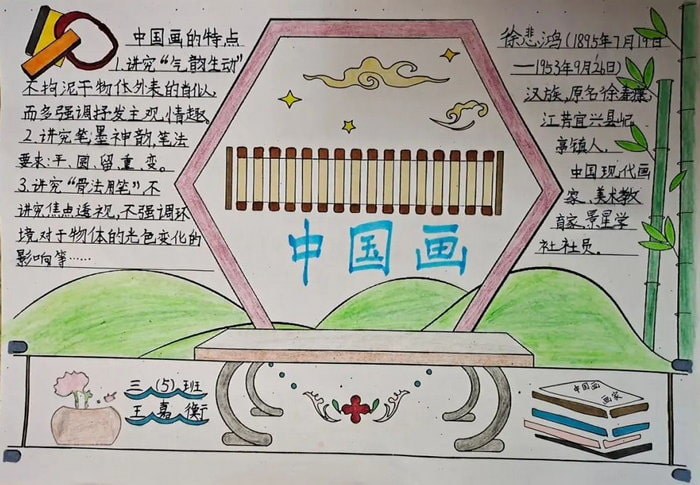 中国画的特点
1.讲究“气韵生动”
不拘泥于物体外表的肖似,
而多强调抒发主观,情趣。
2.讲究笔墨神韵,笔法
要求:平、圆、留、重、变。
3.讲究“骨法用笔”不
讲究焦点透视,不强调环
境对于物体的光色变化的
影响等……
中国画
徐悲鸿(1895年7月19日
—1953年9月26日)
汉族,原名徐寿康,
江苏宜兴县屺
亭镇人。
中国现代画
家、美术教
育家,景星学
社社员。
三(5)班
王嘉衡
中国画
画家